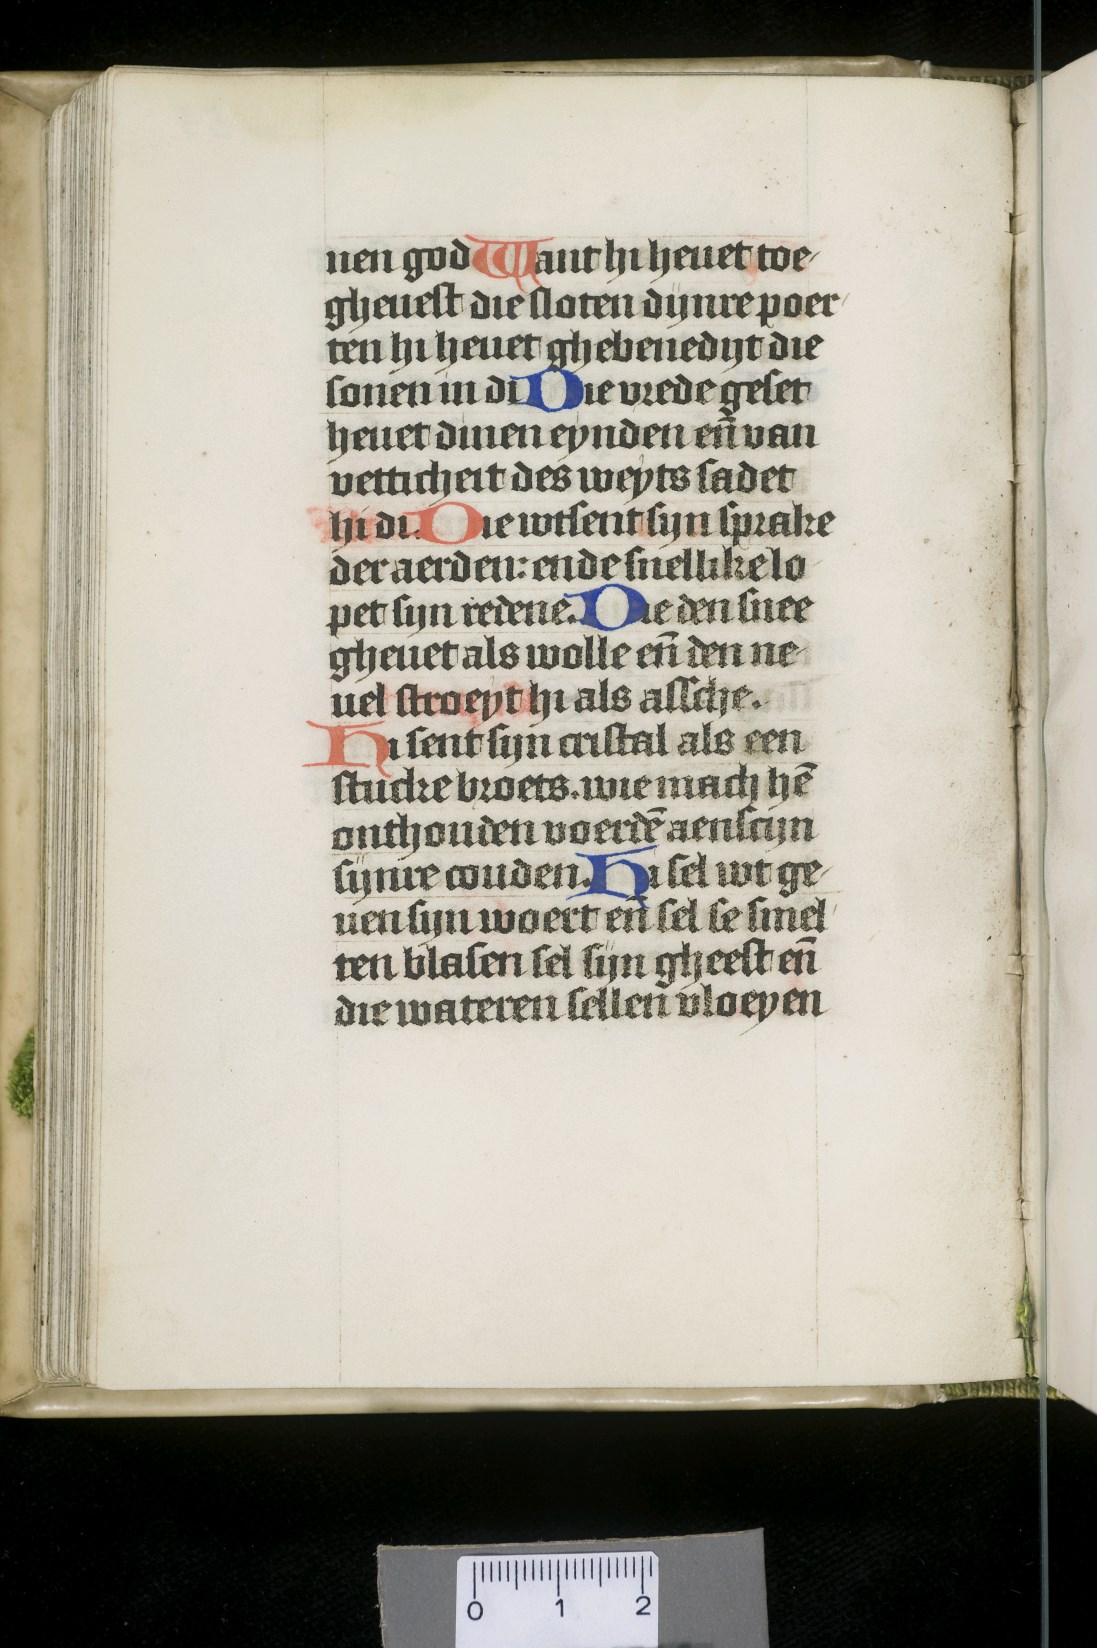 nen god Want hi heuet toe-
gheuest die sloten dijnre poer-
ten hi heuet ghebenedijt die
sonen in di Die vrede geset
heuet dinen eynden en̄ van
vetticheit des weyts sadet
hi di. Die wtsent sijn sprake
der aerden: ende snellike lo
pet sijn redene. Die den snee
gheuet als wolle en̄ den ne-
uel stroeyt hi als assche.
Hi sent sijn cristal als een
stucke broets. wie mach hē
onthouden voerdē aenscijn
sijnre couden. Hi sel wt ge-
uen sijn woert en̄ sel se smel-
ten blasen sel sijn gheest en̄
die wateren sellen vloeyen
0 1 2